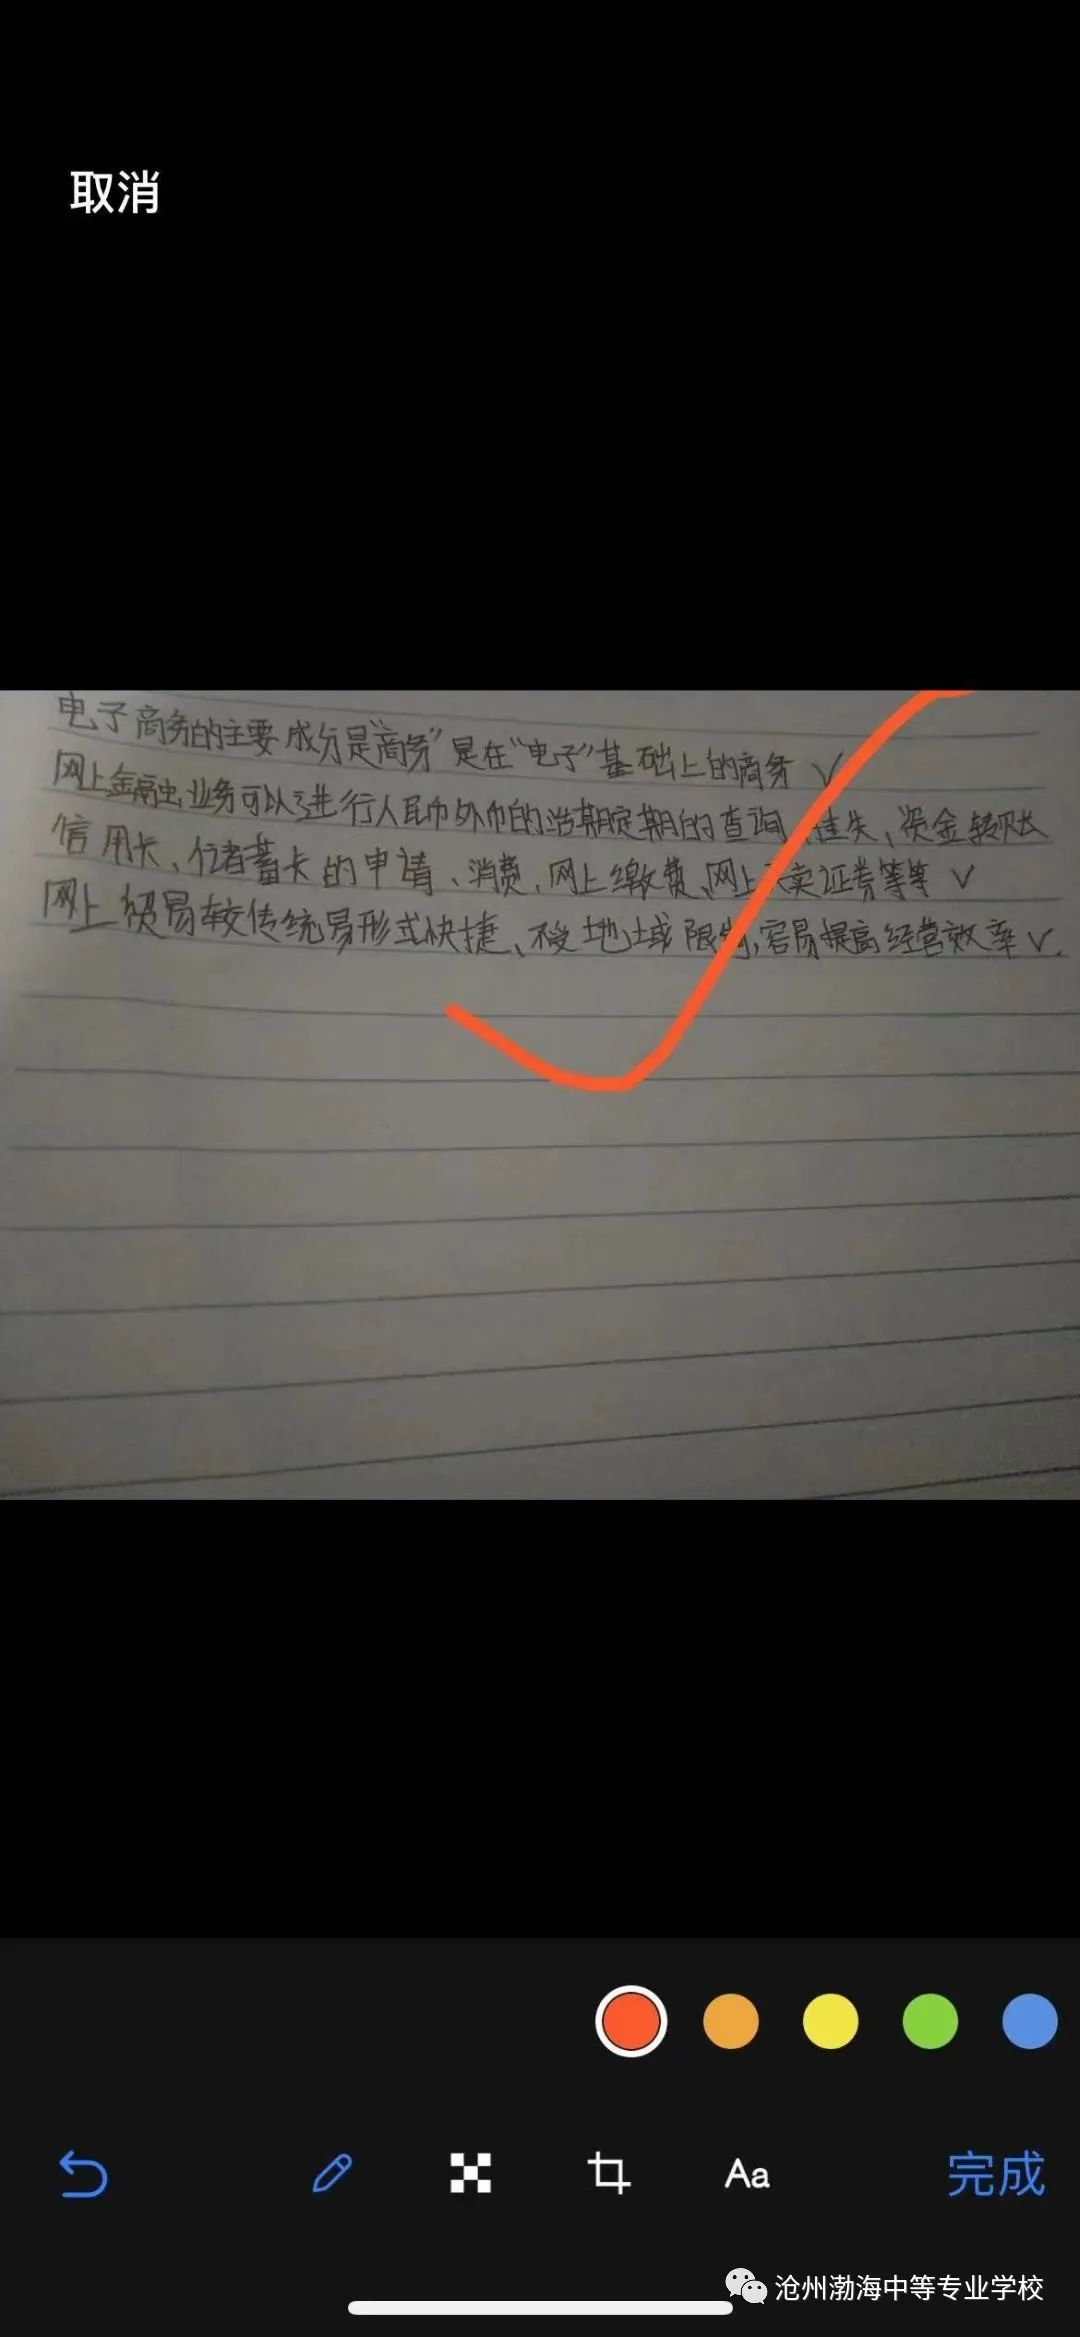 取消
电子商务的主要成分是"商务"是在"电子"基础上的商务 √
网上金融业务可以进行人民币外币的活期定期的查询、挂失、资金转账
信用卡、储蓄卡的申请、消费、网上缴费、网上买卖证券等等 √
网上贸易较传统易形式快捷、不受地域限制,容易提高经营效率√.
Aa
完成
沧州渤海中等专业学校